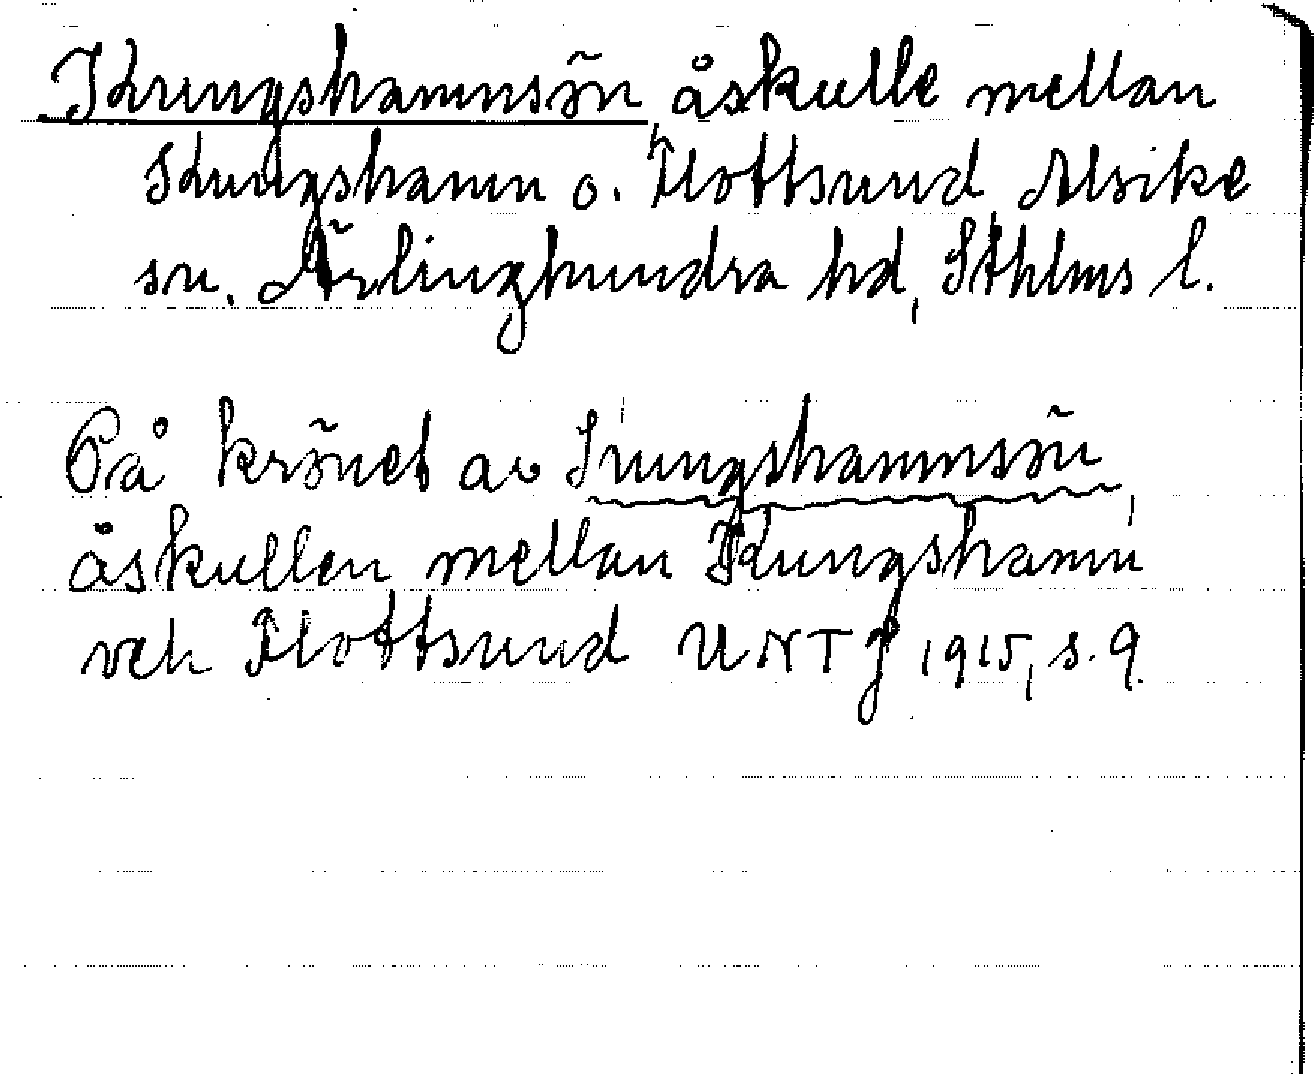 Kungshamnsön, åskulle mellan
Kungshamn o. Flottsund Alsike
sn. Ärlinghundra hd, Sthlms l.
På krönet av Kungshamnsön,
åskullen mellan Kungshamn
och Flottsund UNTJ 1915, s. 9.